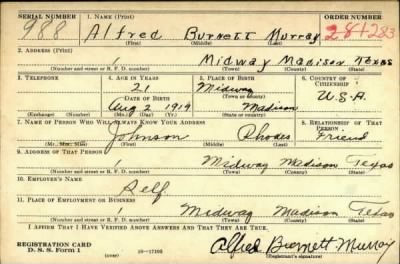 SERIAL NUMBER 1. NAME (Print) ORDER NUMBER
988 Alfred Burnett Murray 284283
(First) (Middle) (Last)
2. ADDRESS (Print)
1 Midway Madison Texas
(Number and street or R. F. D. number) (Town) (County) (State)
3. TELEPHONE 4. AGE IN YEARS 5. PLACE OF BIRTH 6. COUNTRY OF CITIZENSHIP
21 Midway
DATE OF BIRTH (Town or county) U.S.A.
Aug 2 1919 Madison
(Exchange) (Number) (Mo.) (Day) (Yr.) (State or country)
7. NAME OF PERSON WHO WILL ALWAYS KNOW YOUR ADDRESS 8. RELATIONSHIP OF THAT PERSON
Johnson Rhodes Friend
(Mr., Mrs., Miss) (First) (Middle) (Last)
9. ADDRESS OF THAT PERSON
1 Midway Madison Texas
(Number and street or R. F. D. number) (Town) (County) (State)
10. EMPLOYER'S NAME
Self
11. PLACE OF EMPLOYMENT OR BUSINESS
1 Midway Madison Texas
(Number and street or R. F. D. number) (Town) (County) (State)
I AFFIRM THAT I HAVE VERIFIED ABOVE ANSWERS AND THAT THEY ARE TRUE.
REGISTRATION CARD
D. S. S. Form 1 (over) 16—17105 Alfred Burnett Murray
(Registrant's signature)